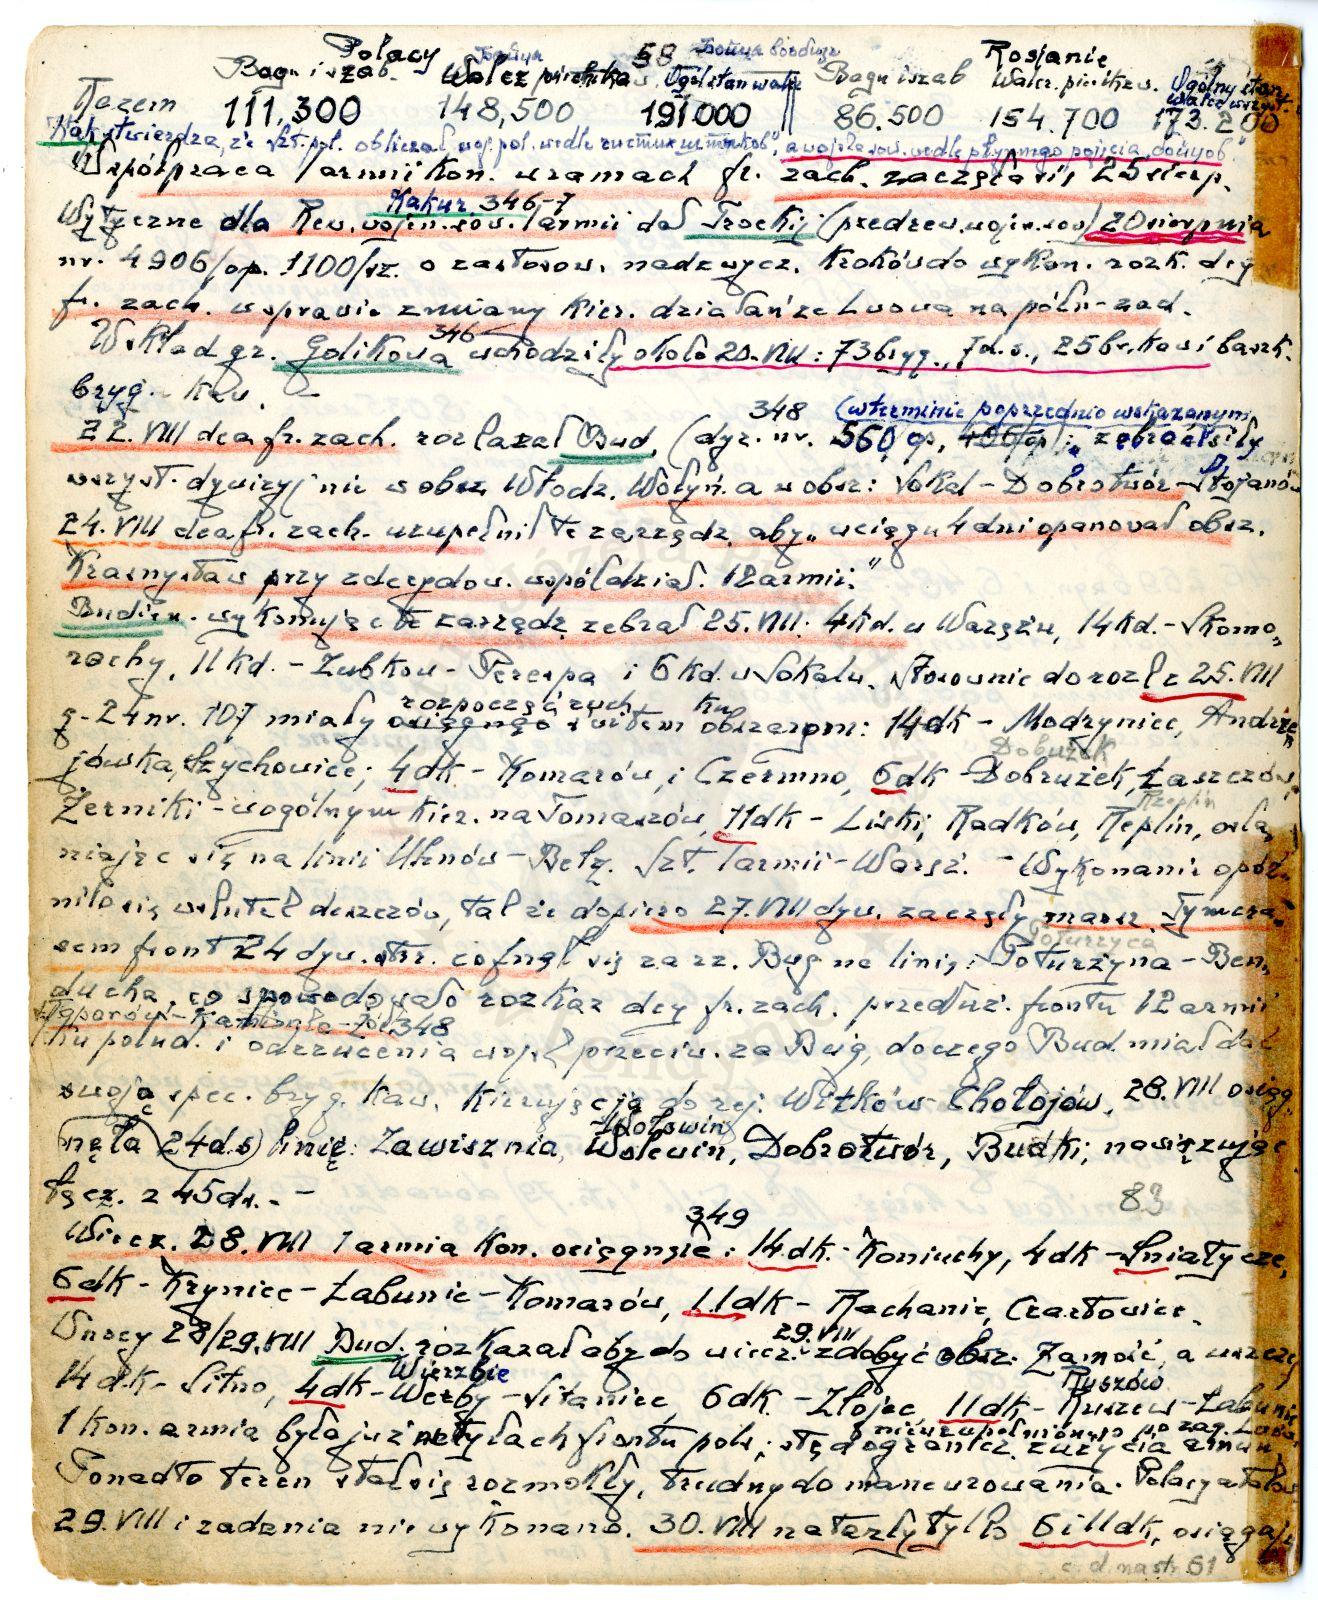 58
Polacy Rosjanie
Bagn i szab. Walcz. piechtka Ogól. stan walcz. Bagn i szab Walcz. piech. Kaw. Ogólny stan
Razem 111,300 148,500 191.000 86.500 154.700 173.200
Kak. twierdza, że szt. pol. obliczał woj. pol. wedle a wojska sow. wedle płynnego pojęcia
Współpraca 1 armii kon. w ramach fr. zach. zaczęła się 25 sierp.
Kakur. 346-7
Wytyczne dla Rew. wojen. sow. 1 armii dał Trockij (przedrew. wojen. sow) 20 sierpnia
nr. 4906/op. 1100/sz. o zastosow. nadzwycz. kroków do wykon. rozk. dcy
fr. zach. w sprawie zmiany kier. działań ze Lwowa na półn-zad.
W skład gr. Golikowa 346 wchodziły około 20. VIII: 73 bryg., 7 d.s., 25 br. kaw i baszk.
bryg. kaw. –
348 (w terminie poprzednio wskazanym
22. VIII dca fr. zach. rozkazał Bud. (dyr. nr. 560/op, 406/op): zebrać siły
wszyst. dywizyj nie w obsz. Włodz. Wołyń. a w obsz: Sokal – Dobrotwór – Stojanów
24. VIII dca fr. zach. uzupełnił te zarządz. aby „w ciągu 4 dni opanował obsz.
Krasnystaw przy zdecydow. współdział. 12 armii."
Budien. wykonując te zarządz. zebrał 25. VIII: 4 kd. w Waręzu, 14 kd. – Skomo-
rochy, 11 kd. – Zubkow – Perespa i 6 kd. w Sokalu. Stosownie do rozk. z 25. VIII
rozpocząć ruch ku
g. 24 nr. 107 miały osiągnąć świtem obszarom: 14 dk – Modryniec, Andrze-
jówka, Szychowice; 4 dk – Komarów, i Czermno, 6 dk – Dobrużek, Łaszczów, Dobużek
Żerniki – w ogólnym kier. na Tomaszów, 11 dk – Liski, Radków, Replin, osła- Rzeplin
niając się na linii Uhnów – Bełz. Szt. 1 armii – Waręż. – Wykonanie opóź-
niło się wskutek deszczów, tak że dopiero 27. VIII dyw. zaczęły marsz. Tymcza-
sem front 24 dyw. str. cofnął się za rz. Bug na linię: Poturzyna – Ben- Poturzyca
ducha, co spowodowało rozkaz dcy fr. zach. przedłuż. frontu 12 armii
348
ku połud. i odrzucenia wojsk przeciw. za Bug, do czego Bud. miał dać
swoją spec. bryg. kaw. kierując ją do rej. Witków – Chołojów. 28. VIII osiąg-
nęła 24 d.s linię: Zawisznia, Wolswin, Dobrotwór, Budki, nawiązując Wołswin
łącz. z 45 ds. – 83
349
Wiecz. 28. VIII 1 armia kon. osiągnęła: 14 dk. – Koniuchy, 4 dk – Śniatycze,
6 dk – Krynice – Łabunie – Komarów, 11 dk – Rachanie, Czartowiec.
W nocy 28/29. VIII Bud. rozkazał aby do wiecz. 29. VIII zdobyć obsz. Zamość, a w szczeg
14 dk – Sitno, 4 dk – Werby – Sitaniec 6 dk – Złojec 11 dk – Ruszew – Łabunie Wierzbie Ruszów
1 kon. armia była już na tyłach frontu pols; stąd ogranicz. zużycia amun. nieuzupełnionego
Ponadto teren stał się rozmokły, trudny do manewrowania. Polacy atakow.
29. VIII i zadania nie wykonano. 30. VIII natarły tylko 6 i 11 dk, osiągając
c.d. na str. 61